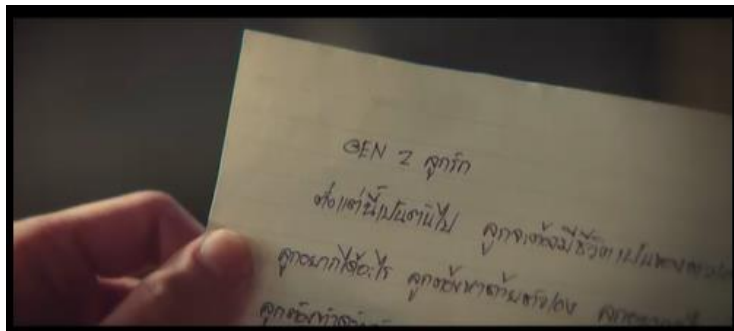 GEN Z ลูกรัก
ตั้งแต่นี้เป็นต้นไป ลูกจะต้องมีชีวิตเป็นของตัวเอง
ลูกอยากได้อะไร ลูกต้องหาด้วยตัวเอง ลูกอยาก
ลูกต้องทำ